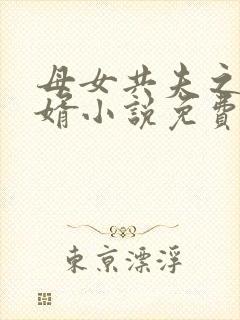 母女共夫之
婿小説免費
東京漂浮